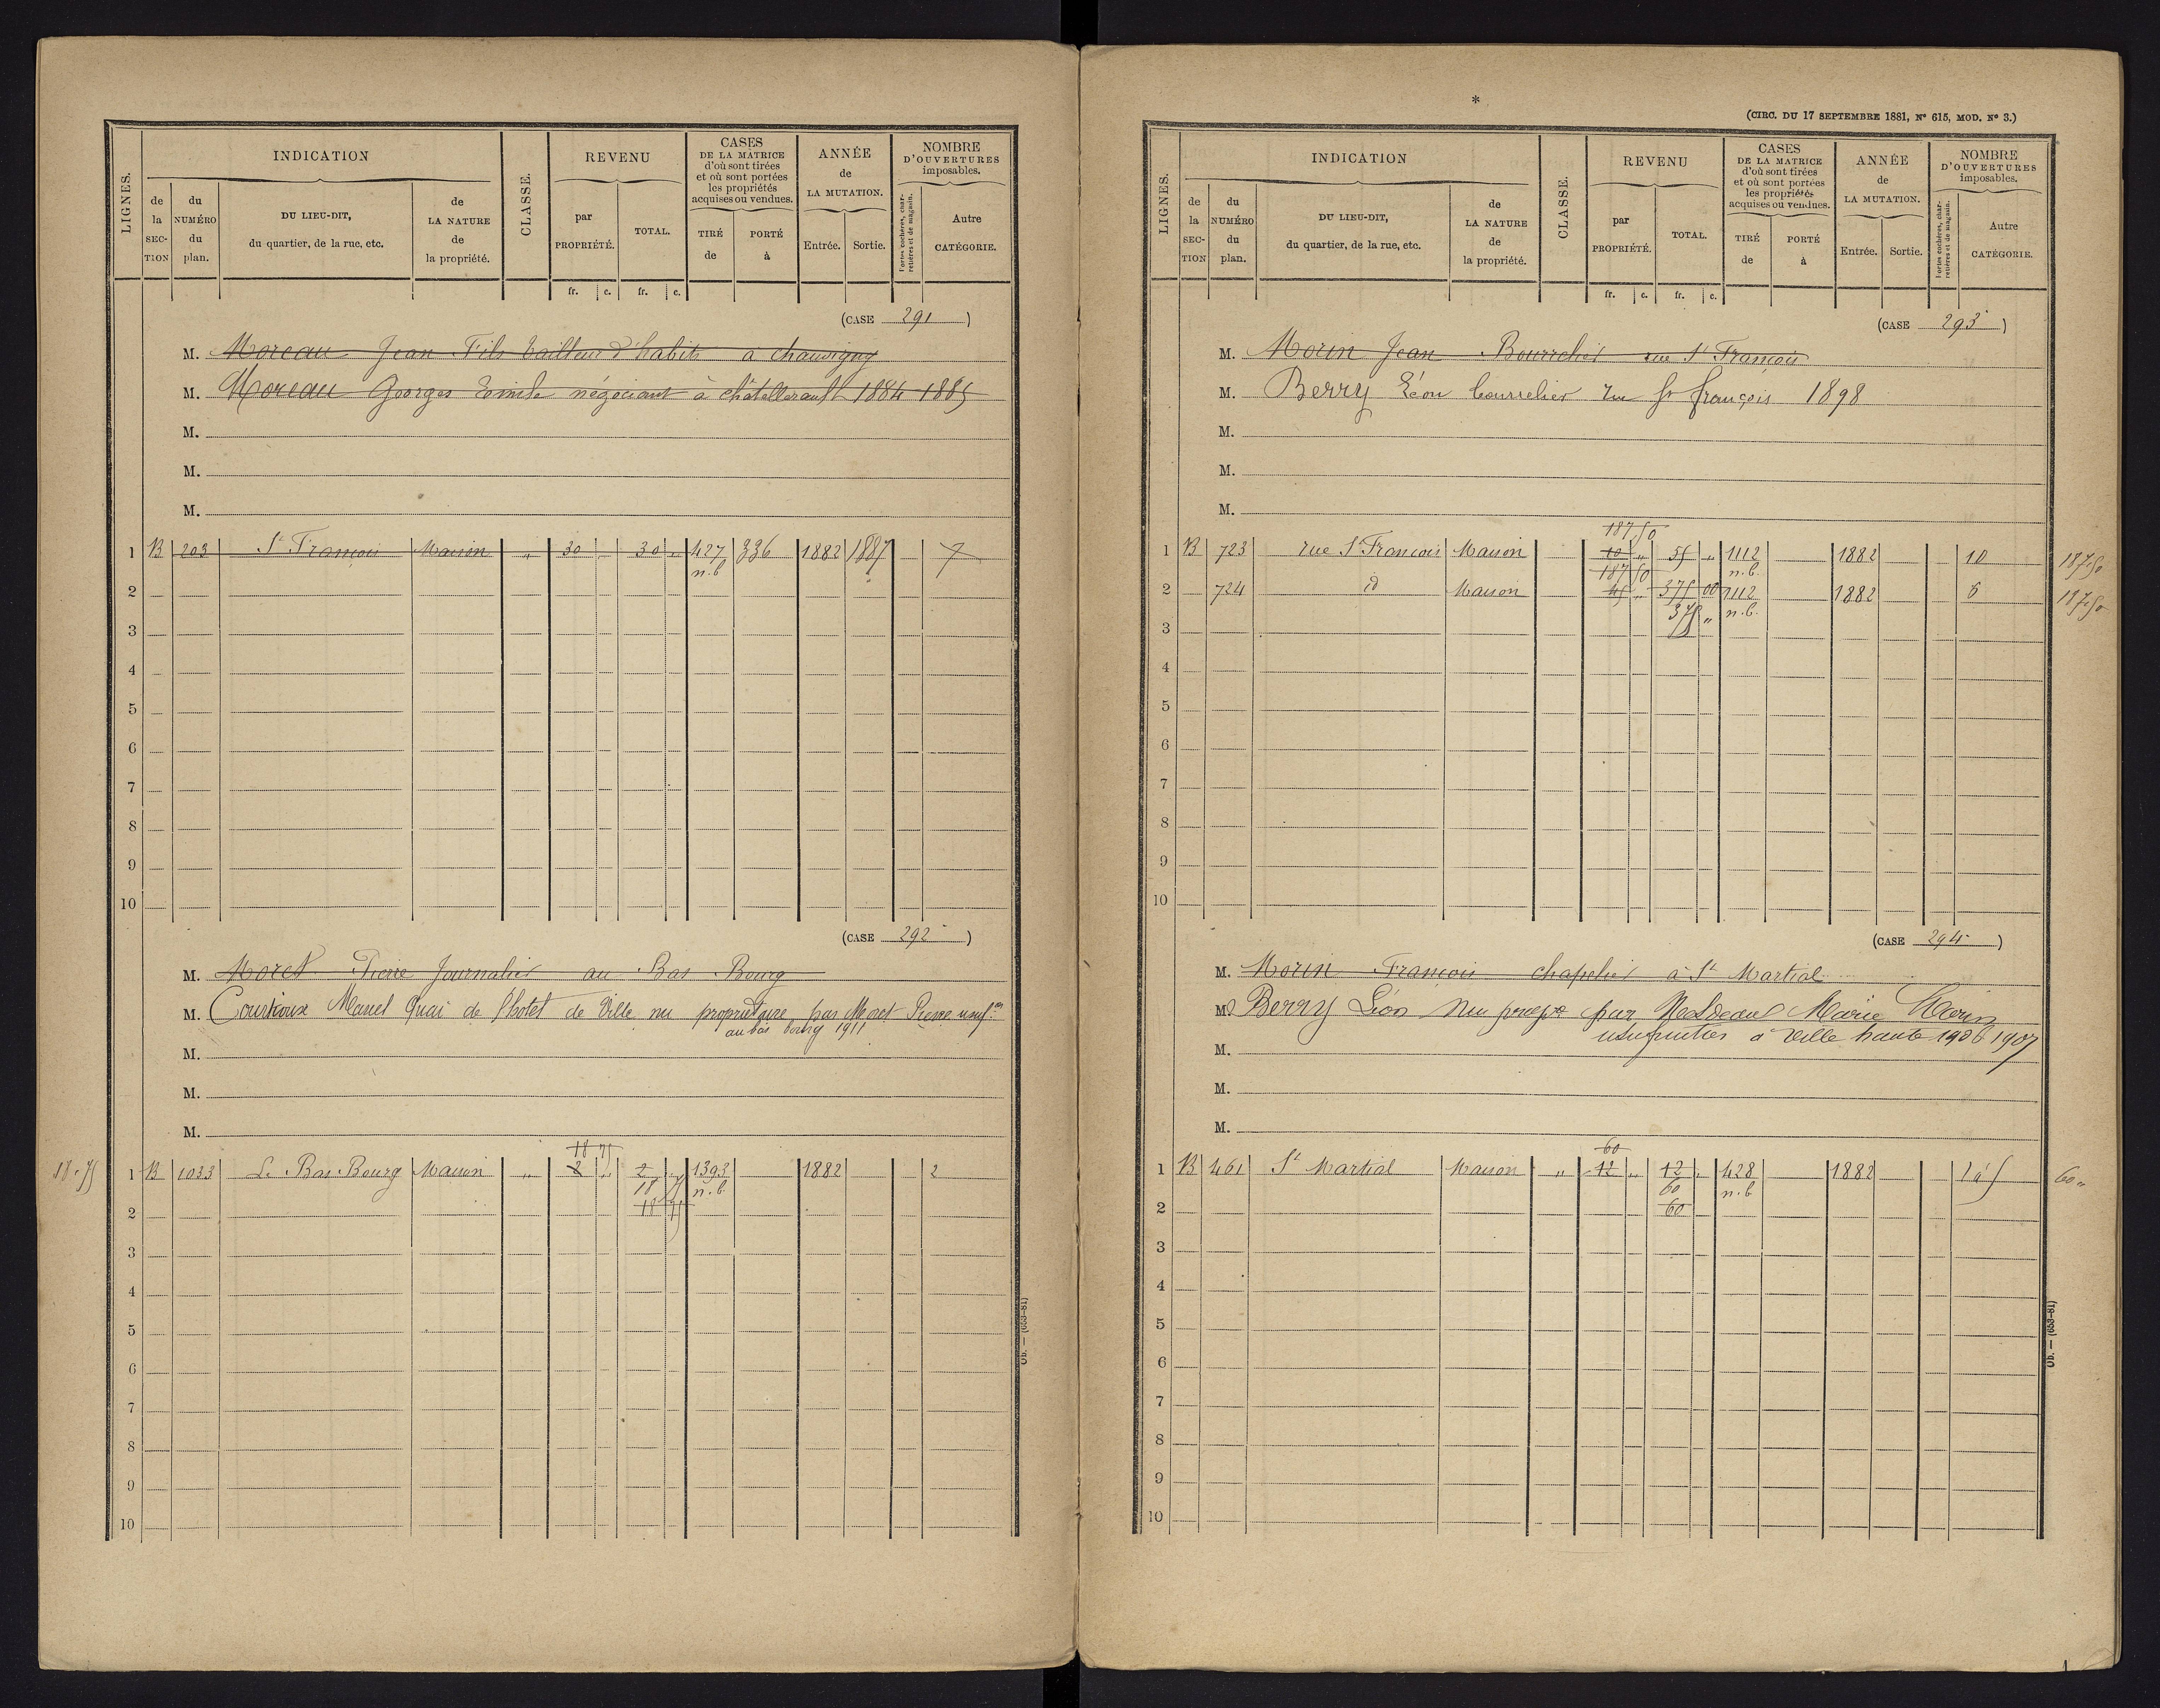 LIGNES.
INDICATION
de la SECTION
du NUMÉRO du plan.
DU LIEU-DIT, du quartier, de la rue, etc.
de LA NATURE de la propriété.
CLASSE.
REVENU
par PROPRIÉTÉ.
TOTAL.
fr. c. fr. c.
CASES DE LA MATRICE d'où sont tirées et où sont portées les propriétés acquises ou vendues.
TIRÉ de
PORTÉ à
ANNÉE de LA MUTATION.
Entrée. Sortie.
NOMBRE D'OUVERTURES imposables.
Portes cochères, charretières et de magasin.
Autre CATÉGORIE.
(CASE 291)
M. Moreau Jean Fils tailleur d'habits à Chauvigny
M. Moreau Georges Emile négociant à chatellerault 1884 1885
M.
M.
M.
1 B 203 St François Maison " 30 " 30 " 427 336 1882 1887 7
n.b
2
3
4
5
6
7
8
9
10
(CASE 292)
M. Moret Pierre Journalier au Bas Bourg
M. Courtioux Marcel Quai de l'hotel de Ville nu propriétaire par Moret Pierre usuf
au bas bourg 1911
M.
M.
M.
18 75
18.75 1 B 1033 Le Bas Bourg Maison " 2 " 2 " 1393 1882 2
18 75 n.b.
2 18 75
3
4
5
6
7
8
9
10
Ob. — (653-81)
*
(CIRC. DU 17 SEPTEMBRE 1881, N° 615, MOD. N° 3.)
LIGNES.
INDICATION
de la SECTION
du NUMÉRO du plan.
DU LIEU-DIT, du quartier, de la rue, etc.
de LA NATURE de la propriété.
CLASSE.
REVENU
par PROPRIÉTÉ.
TOTAL.
fr. c. fr. c.
CASES DE LA MATRICE d'où sont tirées et où sont portées les propriétés acquises ou vendues.
TIRÉ de
PORTÉ à
ANNÉE de LA MUTATION.
Entrée. Sortie.
NOMBRE D'OUVERTURES imposables.
Portes cochères, charretières et de magasin.
Autre CATÉGORIE.
(CASE 293)
M. Morin Jean Bourrelier rue St François
M. Berry Léon bourrelier rue St françois 1898
M.
M.
M.
187 50
1 B 723 rue St François Maison 10 " 55 " 1112 1882 10 187.50
187 50 n.b.
2 724 id Maison 45 " 375 00 1112 1882 6 187.50
375 " n.b.
3
4
5
6
7
8
9
10
(CASE 294)
M. Morin François chapelier à St Martial
M. Berry Léon Nu par Marie Morin
à Ville haute 1906 1907
M.
M.
M.
60
1 B 461 St Martial Maison " 12 " 12 " 428 1882 1 à 5 60 "
60 n.b
2 60
3
4
5
6
7
8
9
10
Ob. — (653-81)